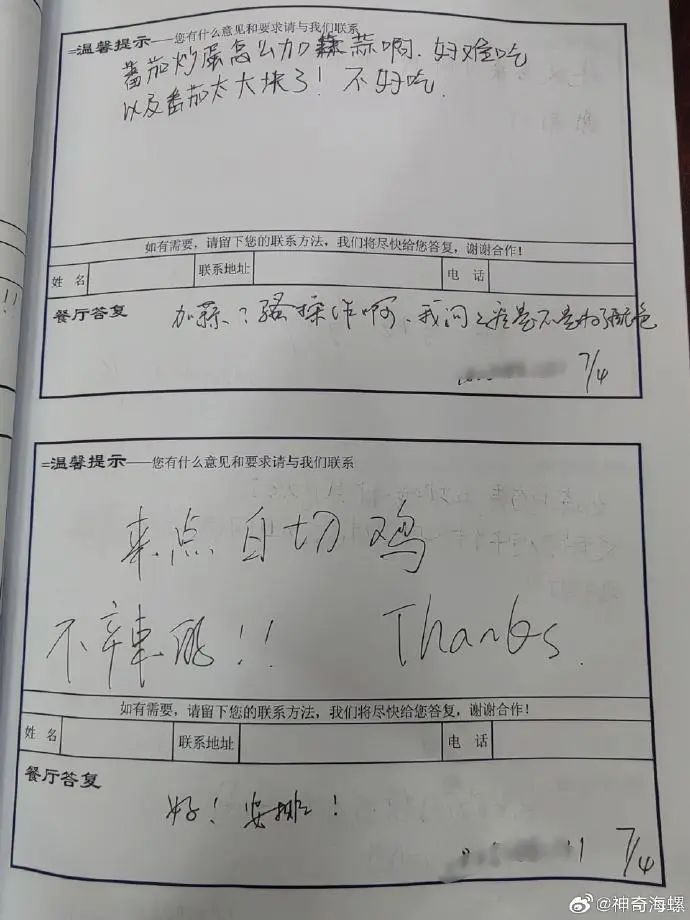 =温馨提示——您有什么意见和要求请与我们联系
蕃茄炒蛋怎么加蒜啊.好难吃
以及番茄太大块了！不好吃.
如有需要，请留下您的联系方法，我们将尽快给您答复，谢谢合作！
姓 名 联系地址 电 话
餐厅答复 加蒜？骚操作啊、我问之后是不是为了配色
7/4
=温馨提示——您有什么意见和要求请与我们联系
来点白切鸡
不辣的!! Thanks.
如有需要，请留下您的联系方法，我们将尽快给您答复，谢谢合作！
姓 名 联系地址 电 话
餐厅答复
好！安排！
7/4
@神奇海螺